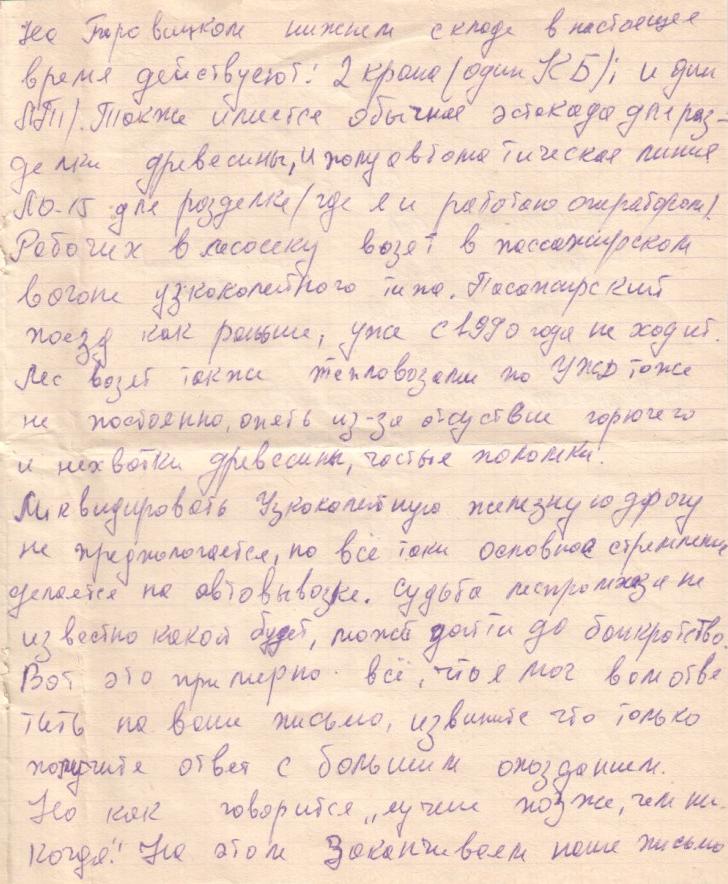 На Паровицком нижнем складе в настоящее
время действуют: 2 крана (один КБ); и дин
ЛТ). Также имеется обычная эстакада для раз-
делки древесины, и полуавтоматическая линия
ЛО-15 для розделке (где я и работаю оператором).
Рабочих в лесосеку возят в пассажирском
вагоне узкоколейного типа. Пасажирский
поезд как раньше, уже с 1990 года не ходит.
Лес возят также тепловозами по УЖД тоже
не постоянно, опять из-за отсуствие горючего
и нехватки древесины, частые поломки.
Ликвидировать Узкоколейную железную дрогу
не предпологается, но всё таки основноа стремление
делается на автовывозке. Судьба леспромхоза не
известно какой будет, может дойти до банкротства.
Вот это примерно всё, что я мог вам отве
тить на ваше письмо, извините что только
получите ответ с большим опозданием.
Но как говорится „лучше позже, чем ни-
когда". На этом Заканчиваем наше письмо